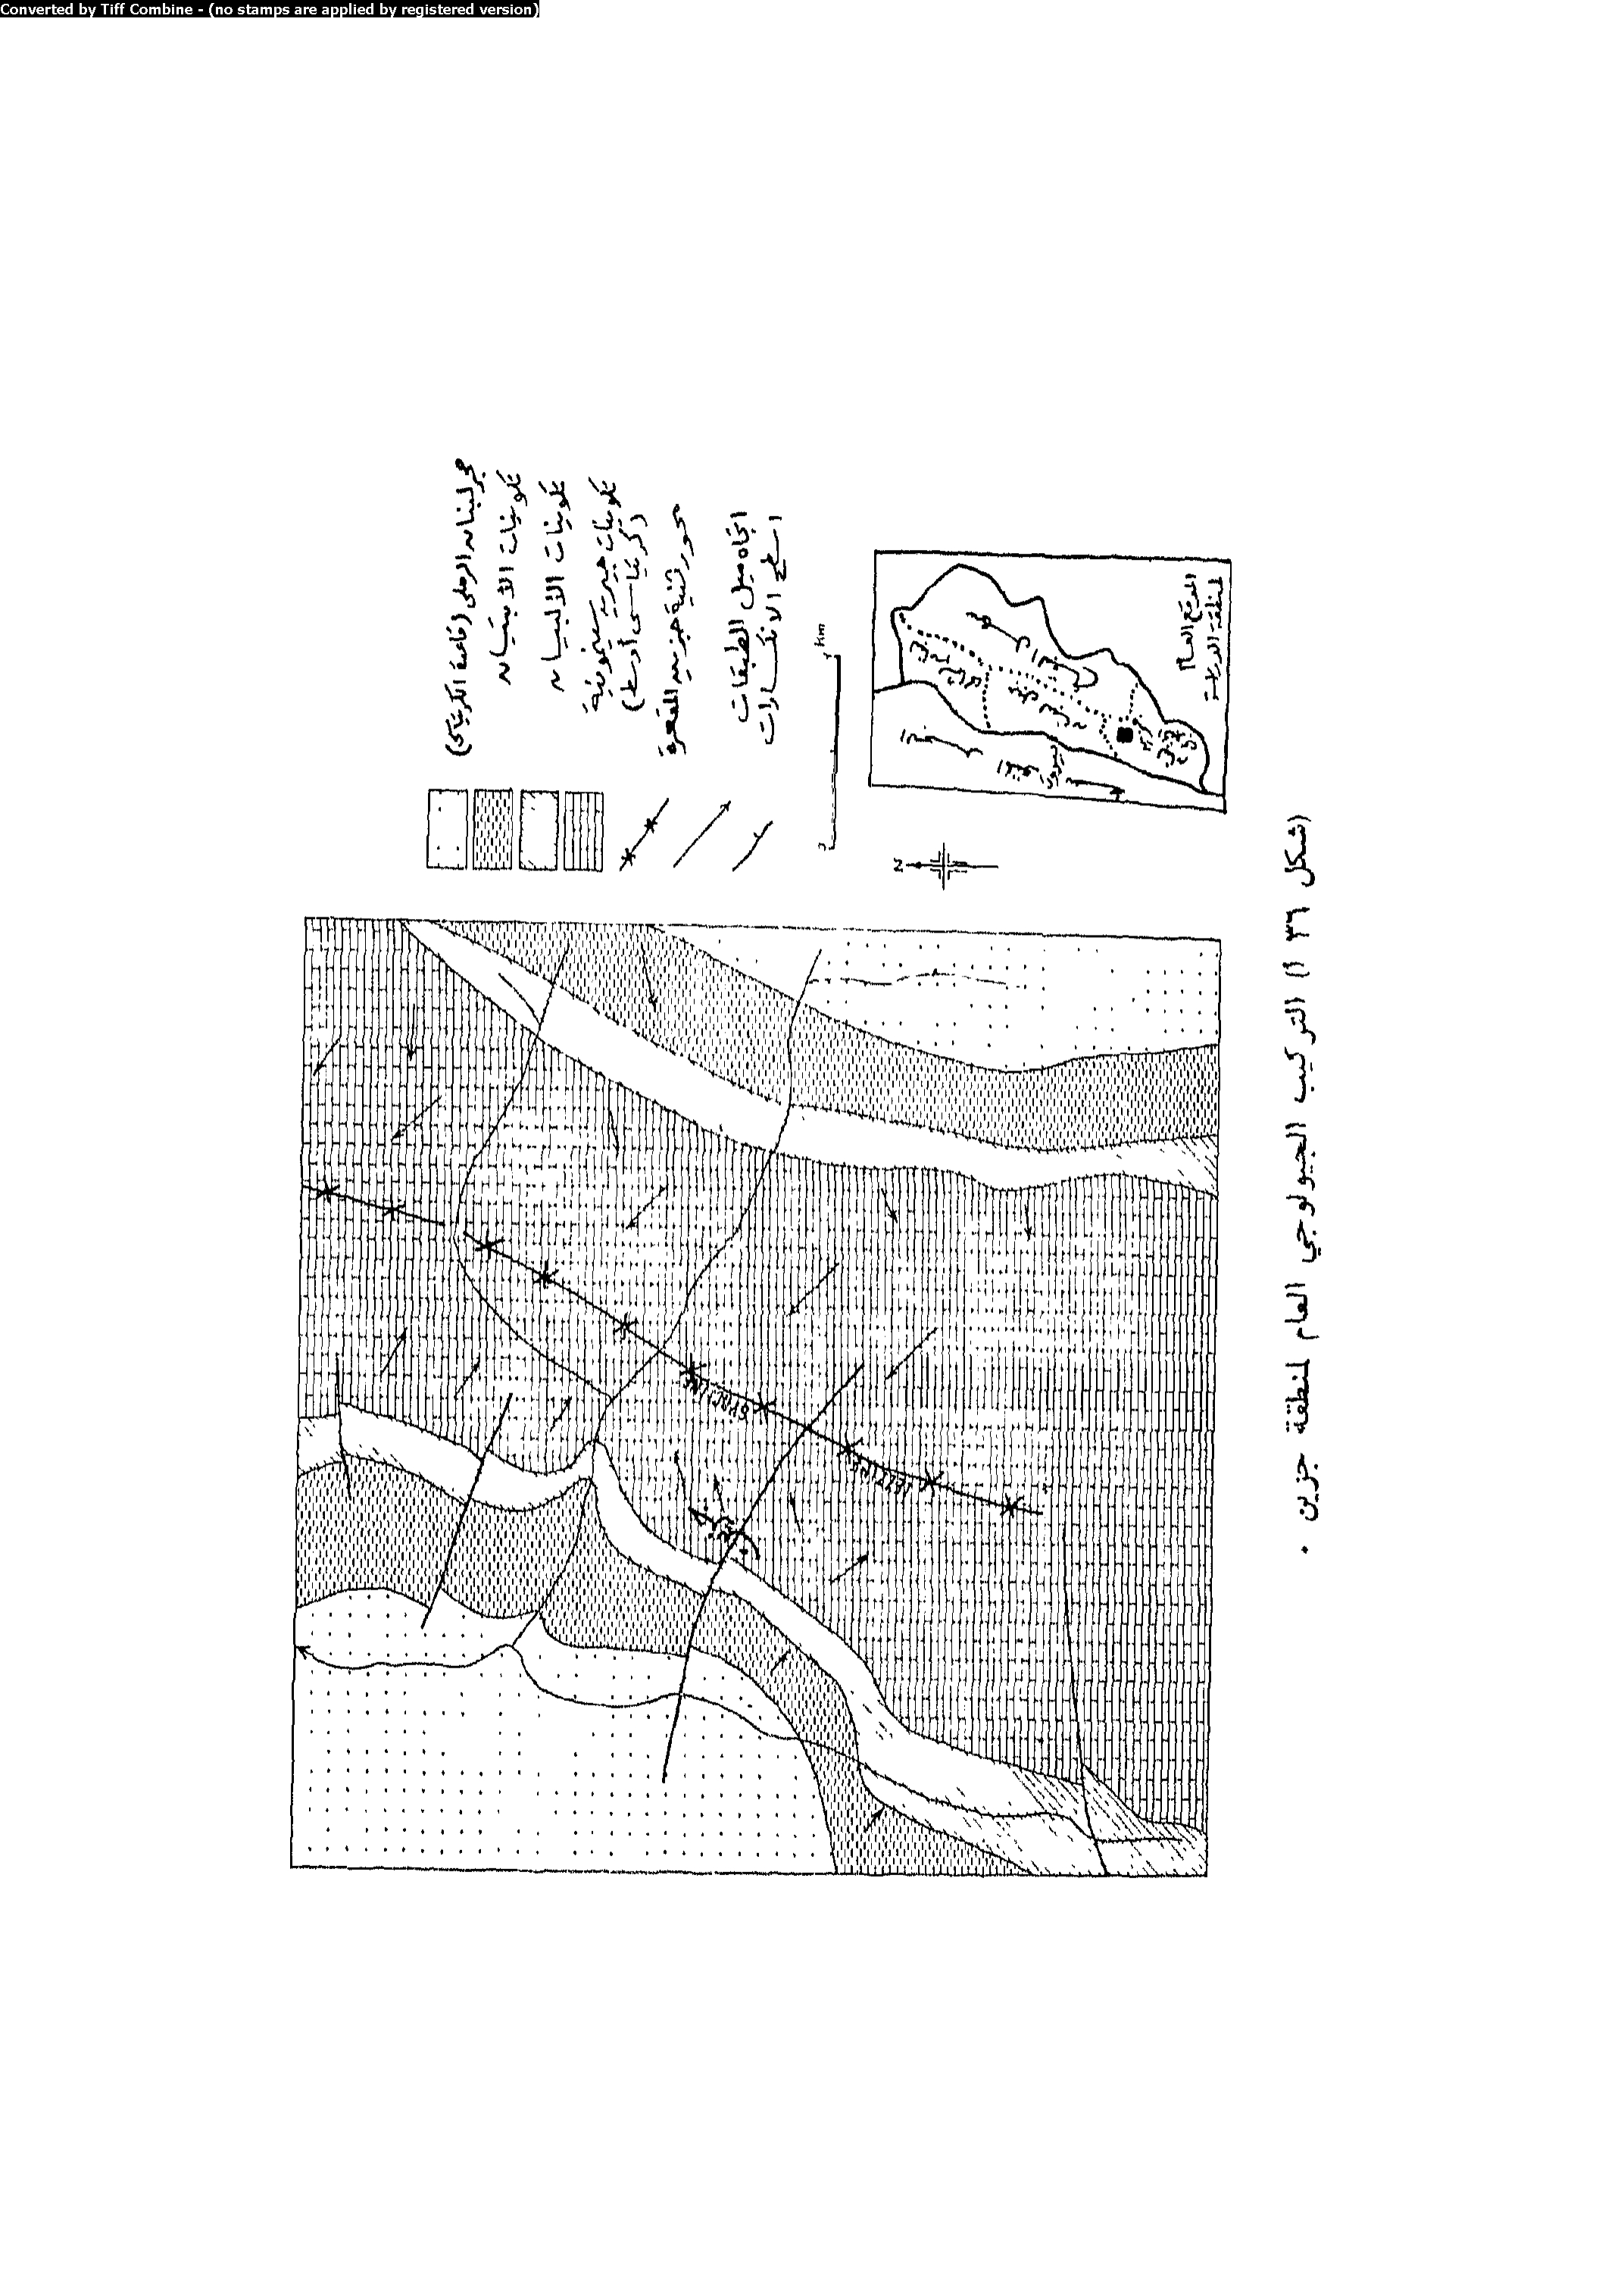 Converted by Tiff Combine - (no stamps are applied by registered version)
حجر لبنان الرملى (قاعدة الكريتاسى)
تكوينات الأبتيان
تكوينات الألبيان
تكوينات جيرية سينومونية
(كريتاسى أوسط)
محور ثنية جزين المقعرة
اتجاه ميل الطبقات
اسطح الانكسارات
0 1 km
N
الموقع العام
لمنطقة الدراسة
جزين
SYNCLINE
JEZZINE
(شكل ٣٦ أ) التركيب الجيولوجي العام لمنطقة جزين .